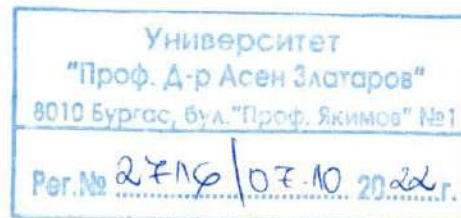 Университет
"Проф. Д-р Асен Златаров"
8010 Бургас, бул."Проф. Якимов" №1
Рег.№ 2716/07.10 2022г.